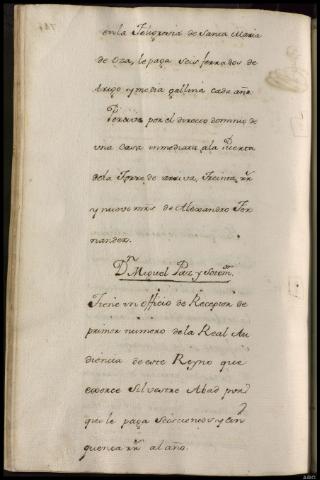 en la Feligresia de Santa Maria
de Oza, le paga seis ferrados de
trigo y media gallina cada año
Percive por el directo dominio de
una Casa inmediata a la Puerta
de la Torre de arriva, treinta rr
y nueve mrs de Alexandro Fer
nandez.
Dn Miguel Paz y
Tiene un officio de Receptor de
primer numero de la Real Au
diencia de este Reyno que
exerce Silvestre Abad por
que le paga Seiscientos y cin
quenta rr al año.